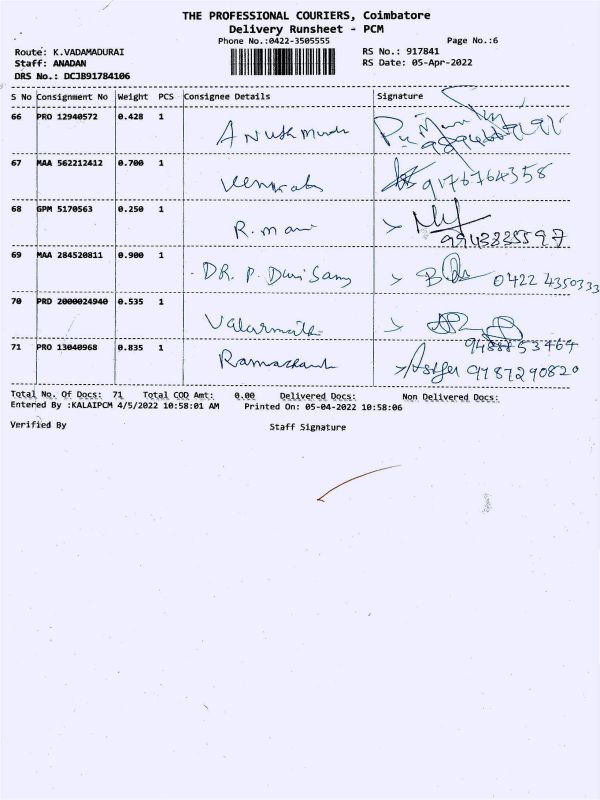 THE PROFESSIONAL COURIERS, Coimbatore
Delivery Runsheet - PCM
Phone No.:0422-3505555
Page No.:6
Route: K.VADAMADURAI
RS No.: 917841
Staff: ANADAN
RS Date: 05-Apr-2022
DRS No.: DCJB91784106
S No Consignment No Weight PCS Consignee Details Signature
66 PRO 12940572 0.428 1
67 MAA 562212412 0.700 1 9176764358
68 GPM 5170563 0.250 1 R. mani
9943335597
69 MAA 284520811 0.900 1 DR. P. Durisamy 0422 4350333
70 PRD 2000024940 0.535 1 Valarmathi
9488853464
71 PRO 13040968 0.835 1 9787290820
Total No. Of Docs: 71 Total COD Amt: 0.00 Delivered Docs: Non Delivered Docs:
Entered By :KALAIPCM 4/5/2022 10:58:01 AM Printed On: 05-04-2022 10:58:06
Verified By Staff Signature